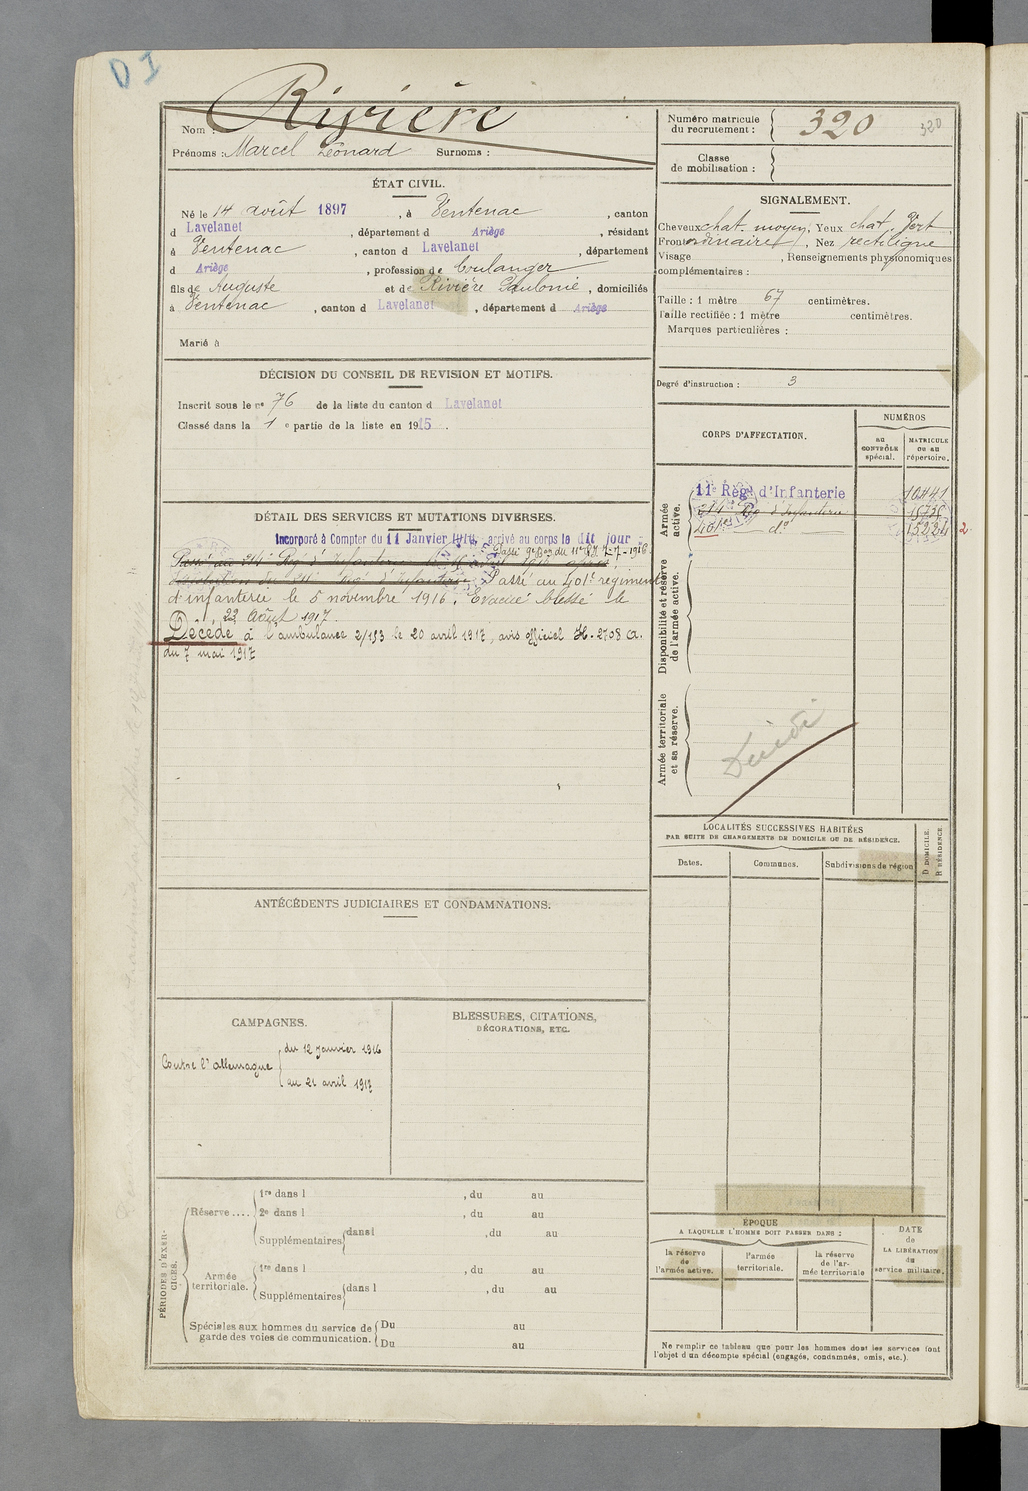 D I
Nom : Rivière
Prénoms : Marcel Léonard Surnoms :
Numéro matricule du recrutement : 320
320
Classe de mobilisation :
ÉTAT CIVIL.
Né le 14 août 1897, à Ventenac, canton
d Lavelanet, département d Ariège, résidant
à Ventenac, canton d Lavelanet, département
d Ariège, profession de boulanger
fils de Auguste et de Rivière Paulonie, domiciliés
à Ventenac, canton d Lavelanet, département d Ariège
Marié à
SIGNALEMENT.
Cheveux chat. moyen, Yeux chat. vert,
Front ordinaire, Nez rectiligne
Visage , Renseignements physionomiques
complémentaires :
Taille : 1 mètre 67 centimètres.
Taille rectifiée : 1 mètre centimètres.
Marques particulières :
Degré d'instruction : 3
DÉCISION DU CONSEIL DE REVISION ET MOTIFS.
Inscrit sous le nº 76 de la liste du canton d Lavelanet
Classé dans la 1 e partie de la liste en 1915.
CORPS D'AFFECTATION.
NUMÉROS
au CONTRÔLE spécial.
MATRICULE OU AU répertoire.
Armée active.
11e Rég. d'Infanterie 10441
214 Rég d'Infanterie
401e dº 15224 2
Disponibilité et réserve de l'armée active.
Armée territoriale et sa réserve.
Décédé
DÉTAIL DES SERVICES ET MUTATIONS DIVERSES.
Incorporé à Compter du 11 Janvier 1916, arrivé au corps le dit jour
Passé au 401e régiment
d'infanterie le 5 novembre 1916. Evacué blessé le
22 Août 1917.
Décédé à l'ambulance 2/153 le 20 avril 1917, avis officiel H-2708 A.
du 7 mai 1917
LOCALITÉS SUCCESSIVES HABITÉES
PAR SUITE DE CHANGEMENTS DE DOMICILE OU DE RÉSIDENCE.
Dates.
Communes.
Subdivisions de région
D DOMICILE.
R RÉSIDENCE.
ANTÉCÉDENTS JUDICIAIRES ET CONDAMNATIONS.
CAMPAGNES.
Contre l'Allemagne
du 12 janvier 1916
au 21 avril 1917
BLESSURES, CITATIONS,
DÉCORATIONS, ETC.
PÉRIODES D'EXERCICES.
Réserve ....
1re dans l , du au
2e dans l , du au
Supplémentaires dans l , du au
Armée territoriale.
1re dans l , du au
Supplémentaires dans l , du au
Spéciales aux hommes du service de garde des voies de communication.
Du au
Du au
ÉPOQUE
A LAQUELLE L'HOMME DOIT PASSER DANS :
la réserve de l'armée active.
l'armée territoriale.
la réserve de l'armée territoriale
DATE de LA LIBÉRATION du service militaire.
Ne remplir ce tableau que pour les hommes dont les services font
l'objet d'un décompte spécial (engagés, condamnés, omis, etc.).